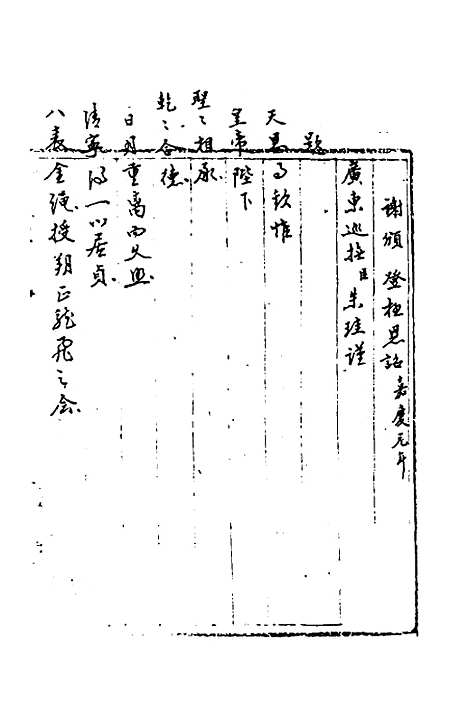 謝頒登極恩詔嘉慶元年
廣東巡撫臣朱珪謹
題
天恩事欽惟
皇帝陛下
聖〻相承
乾〻合德
日月重離而久照
清寧得一以居貞
八表金繩授朔正龍飛之會